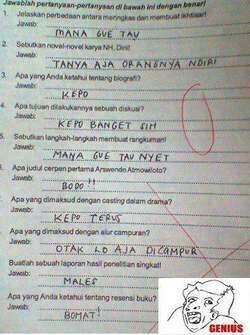 Jawablah pertanyaan-pertanyaan di bawah ini dengan benar!
1. Jelaskan perbedaan antara meringkas dan membuat ikhtisar!
Jawab: MANA GUE TAU
2. Sebutkan novel-novel karya NH, Dini!
Jawab: TANYA AJA ORANGNYA NDIRI
3. Apa yang Anda ketahui tentang biografi?
Jawab: KEPO
4. Apa tujuan dilakukannya sebuah diskusi?
Jawab: KEPO BANGET SIH
5. Sebutkan langkah-langkah membuat rangkuman!
Jawab: MANA GUE TAU NYET
Apa judul cerpen pertama Arswendo Atmowiloto?
Jawab: BODO!!
Apa yang dimaksud dengan casting dalam drama?
Jawab: KEPO TERUS
Apa yang dimaksud dengan alur campuran?
Jawab: OTAK LO AJA DICAMPUR
Buatlah sebuah laporan hasil penelitian singkat!
Jawab: MALES
Apa yang Anda ketahui tentang resensi buku?
Jawab: BOMAT!
GENIUS